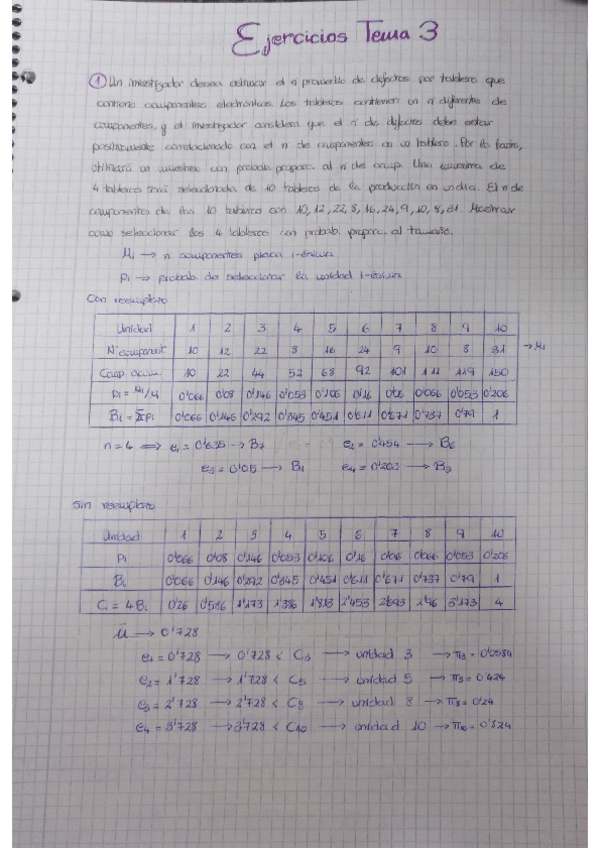 Ejercicios Tema 3
① Un investigador desea estimar el n promedio de defectos por tablero que
contiene componentes electrónicos. Los tableros contienen un n diferentes de
componentes, y el investigador considera que el nº de defectos debe estar
positivamente correlacionado con el n de componentes en un tablero. Por lo tanto,
utilizará un muestreo con probab. propor. al n de comp. Una muestra de
4 tableros será seleccionada de 10 tableros de la producción en un día. El n de
componentes de los 10 tableros son 10, 12, 22, 8, 16, 24, 9, 10, 8, 31. Mostrar
como seleccionar los 4 tableros con probab. propor. al tamaño.
Mi → n componentes placa i-ésima
Pi → probab. de seleccionar la unidad i-ésima
Con reemplazo
Unidad 1 2 3 4 5 6 7 8 9 10
Nº component 10 12 22 8 16 24 9 10 8 31 → Mi
Comp. acum. 10 22 44 52 68 92 101 111 119 150
Pi = Mi/M 0'066 0'08 0'146 0'053 0'106 0'16 0'06 0'066 0'053 0'206
Bi = ΣPi 0'066 0'146 0'292 0'345 0'451 0'611 0'671 0'737 0'79 1
n = 4 ⟹ e₁ = 0'635 → B₇ e₂ = 0'454 → B₆
e₃ = 0'05 → B₁ e₄ = 0'203 → B₃
Sin reemplazo
Unidad 1 2 3 4 5 6 7 8 9 10
Pi 0'066 0'08 0'146 0'053 0'106 0'16 0'06 0'066 0'053 0'206
Bi 0'066 0'146 0'292 0'345 0'451 0'611 0'671 0'737 0'79 1
Ci = 4Bi 0'26 0'586 1'173 1'386 1'813 2'453 2'693 2'96 3'173 4
→ 0'728
e₁ = 0'728 → 0'728 < C₃ → unidad 3 → π₃ = 0'0584
e₂ = 1'728 → 1'728 < C₅ → unidad 5 → = 0'424
e₃ = 2'728 → 2'728 < C₈ → unidad 8 → π₈ = 0'24
e₄ = 3'728 → 3'728 < C₁₀ → unidad 10 → π₁₀ = 0'824